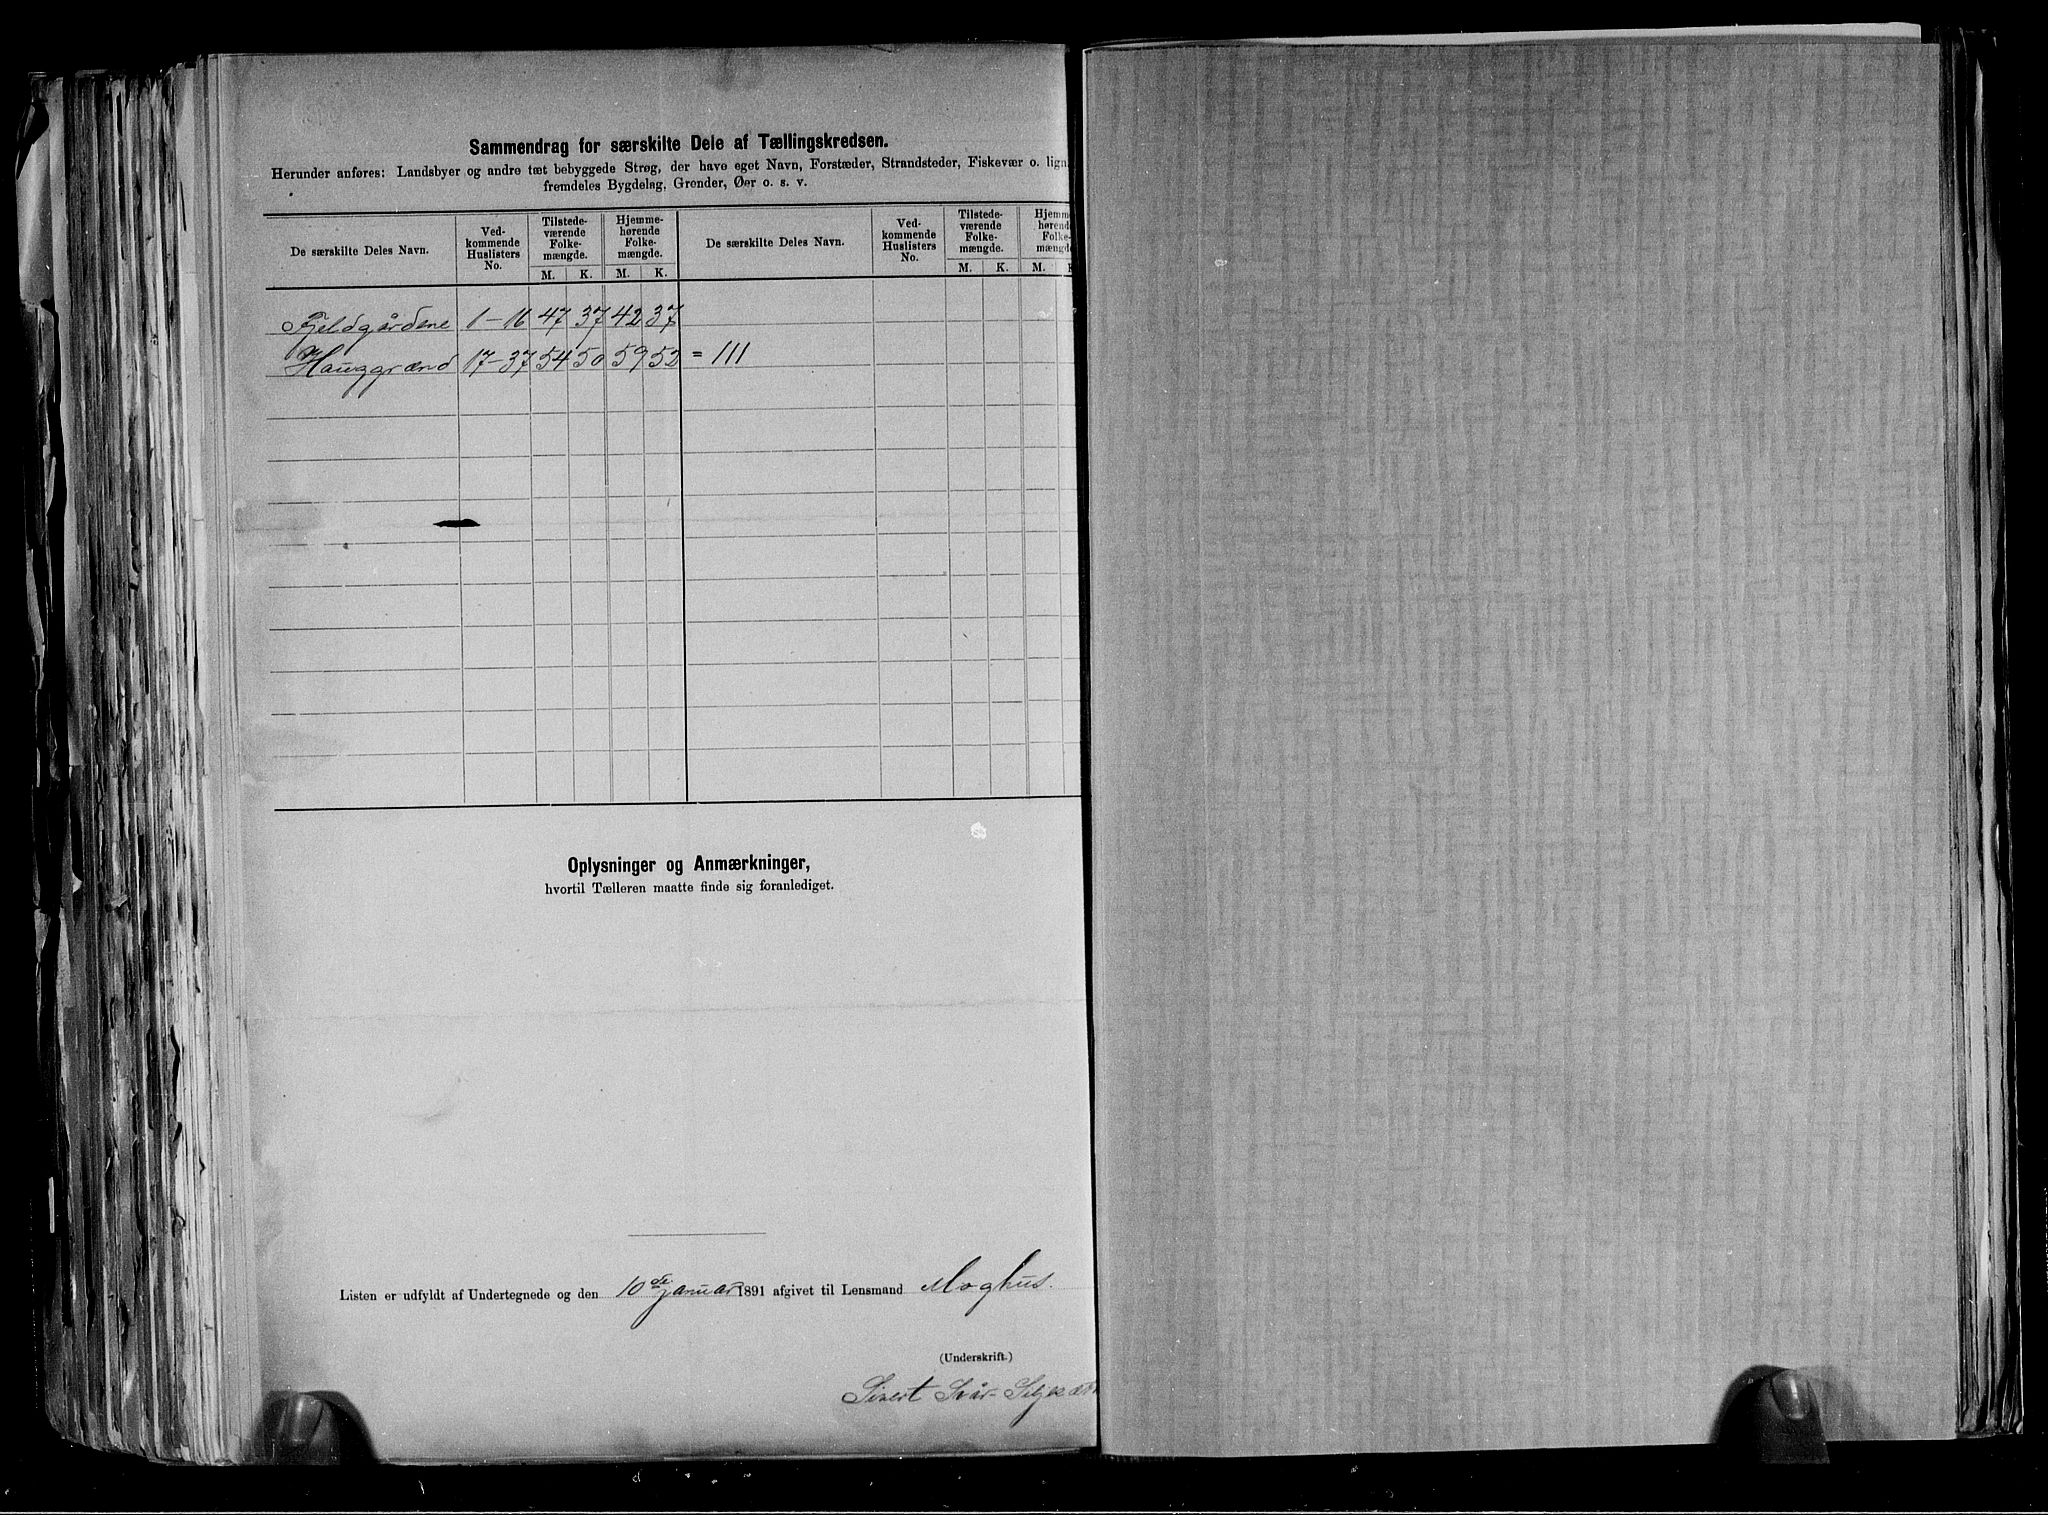 Sammendrag for særskilte Dele af Tællingskredsen.
Herunder anføres: Landsbyer og andre tæt bebyggede Strøg, der have eget Navn, Forstæder, Strandsteder, Fiskevær o. lign.
fremdeles Bygdelag, Grender, Øer o. s. v.
De særskilte Deles Navn. Ved-kommende Huslisters No. Tilstede-værende Folke-mængde. Hjemme-hørende Folke-mængde. De særskilte Deles Navn. Ved-kommende Huslisters No. Tilstede-værende Folke-mængde. Hjemme-hørende Folke-mængde.
M. K. M. K. M. K. M. K.
Fjeldgårdene 1-16 47 37 42 37
Hauggrænd 17-37 54 50 59 52 = 111
Oplysninger og Anmærkninger,
hvortil Tælleren maatte finde sig foranlediget.
Listen er udfyldt af Undertegnede og den 10de januar 1891 afgivet til Lensmand Moghus.
(Underskrift.)
Sivert Svår-